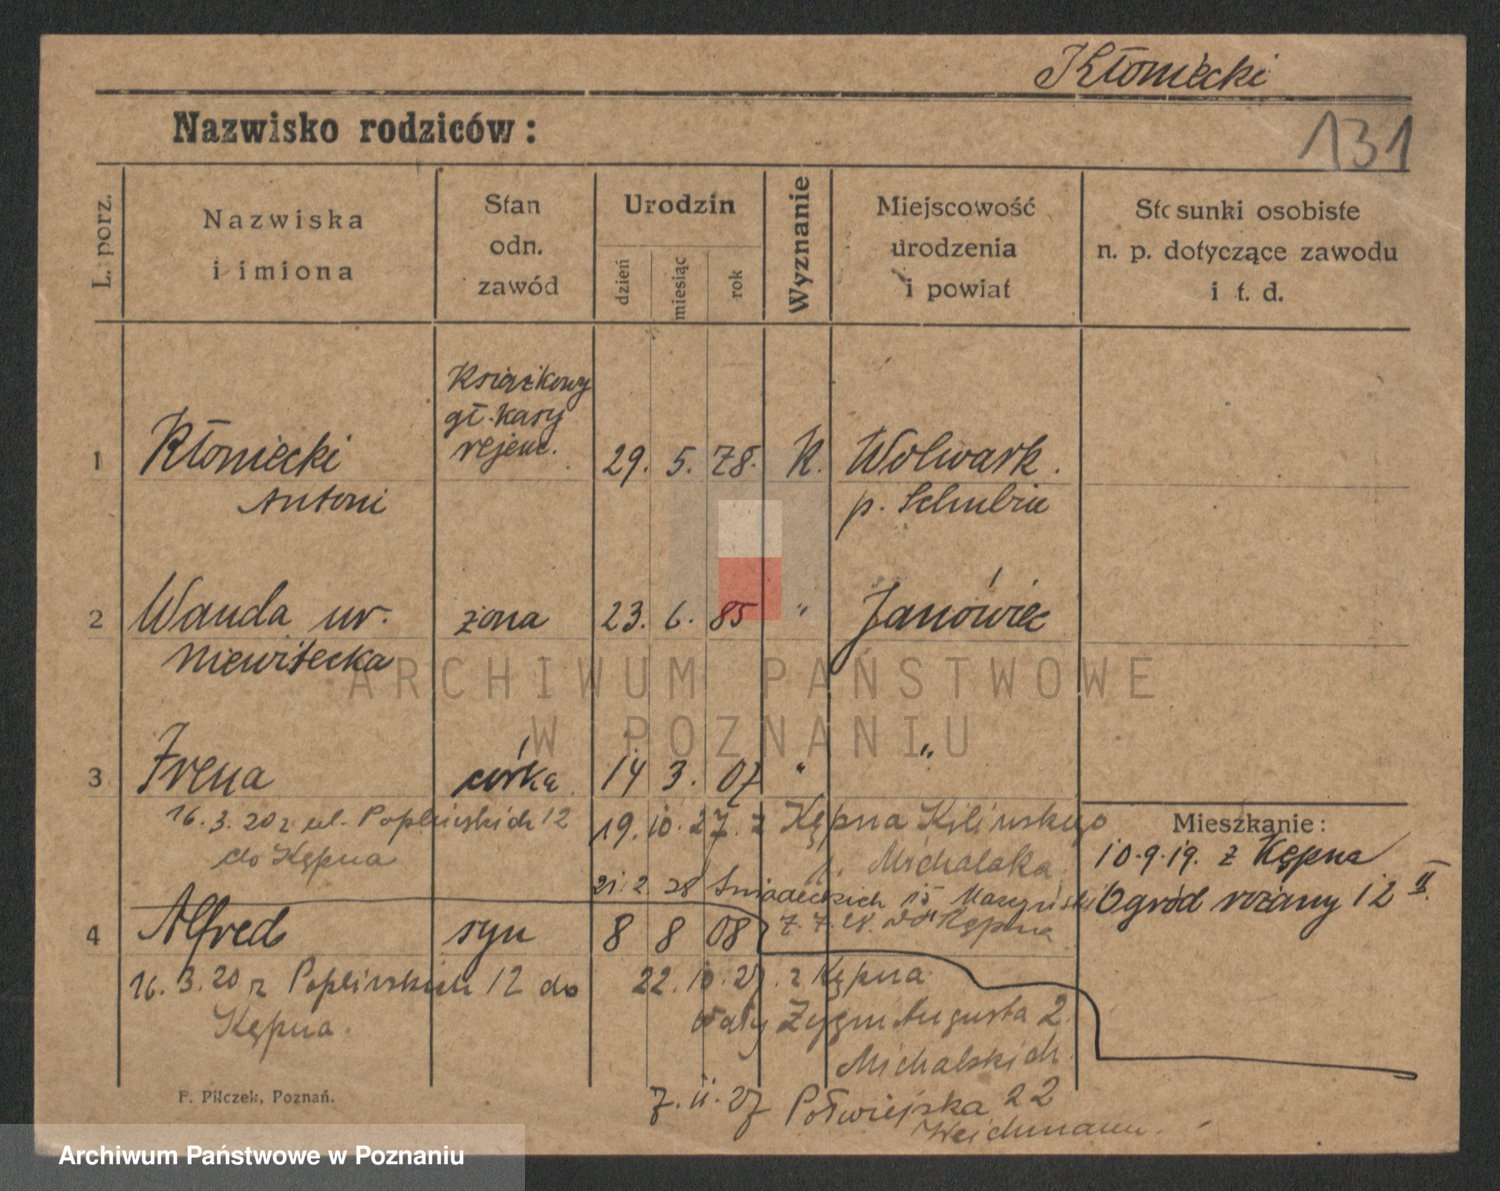 Kłoniecki
131
Nazwisko rodziców:
L. porz.
Nazwiska
i imiona
Stan
odn.
zawód
Urodzin
dzień
miesiąc
rok
Wyznanie
Miejscowość
urodzenia
i powiat
Stosunki osobiste
n. p. dotyczące zawodu
i t. d.
Książkowy
gł. Kasy
rejenc.
1 Kłoniecki 29. 5. 78. K. Wolwark.
Antoni p. Schubin
2 Wanda ur. żona 23. 6. 85 " Janówiec
Niewitecka
3 Irena córka 14 3. 07 " "
16.3.20 z ul. Poplińskich 12 19.10.27. z Kępna Kilińskiego
do Kępna j. Michalaka
Mieszkanie:
10.9.19. z Kępna
21.2.28 Śniadeckich 15
Ogród różany 12 II.
4 Alfred syn 8 8 08 7.7.28. do Kępna
16.3.20 z Poplińskich 12 do 22.10.27. z Kępna
Kępna. Wały Zygm Augusta 2.
Michalskich.
7.11.27 Półwiejska 22
Weichmann.
F. Pilczek, Poznań.
ARCHIWUM PAŃSTWOWE
W POZNANIU
Archiwum Państwowe w Poznaniu